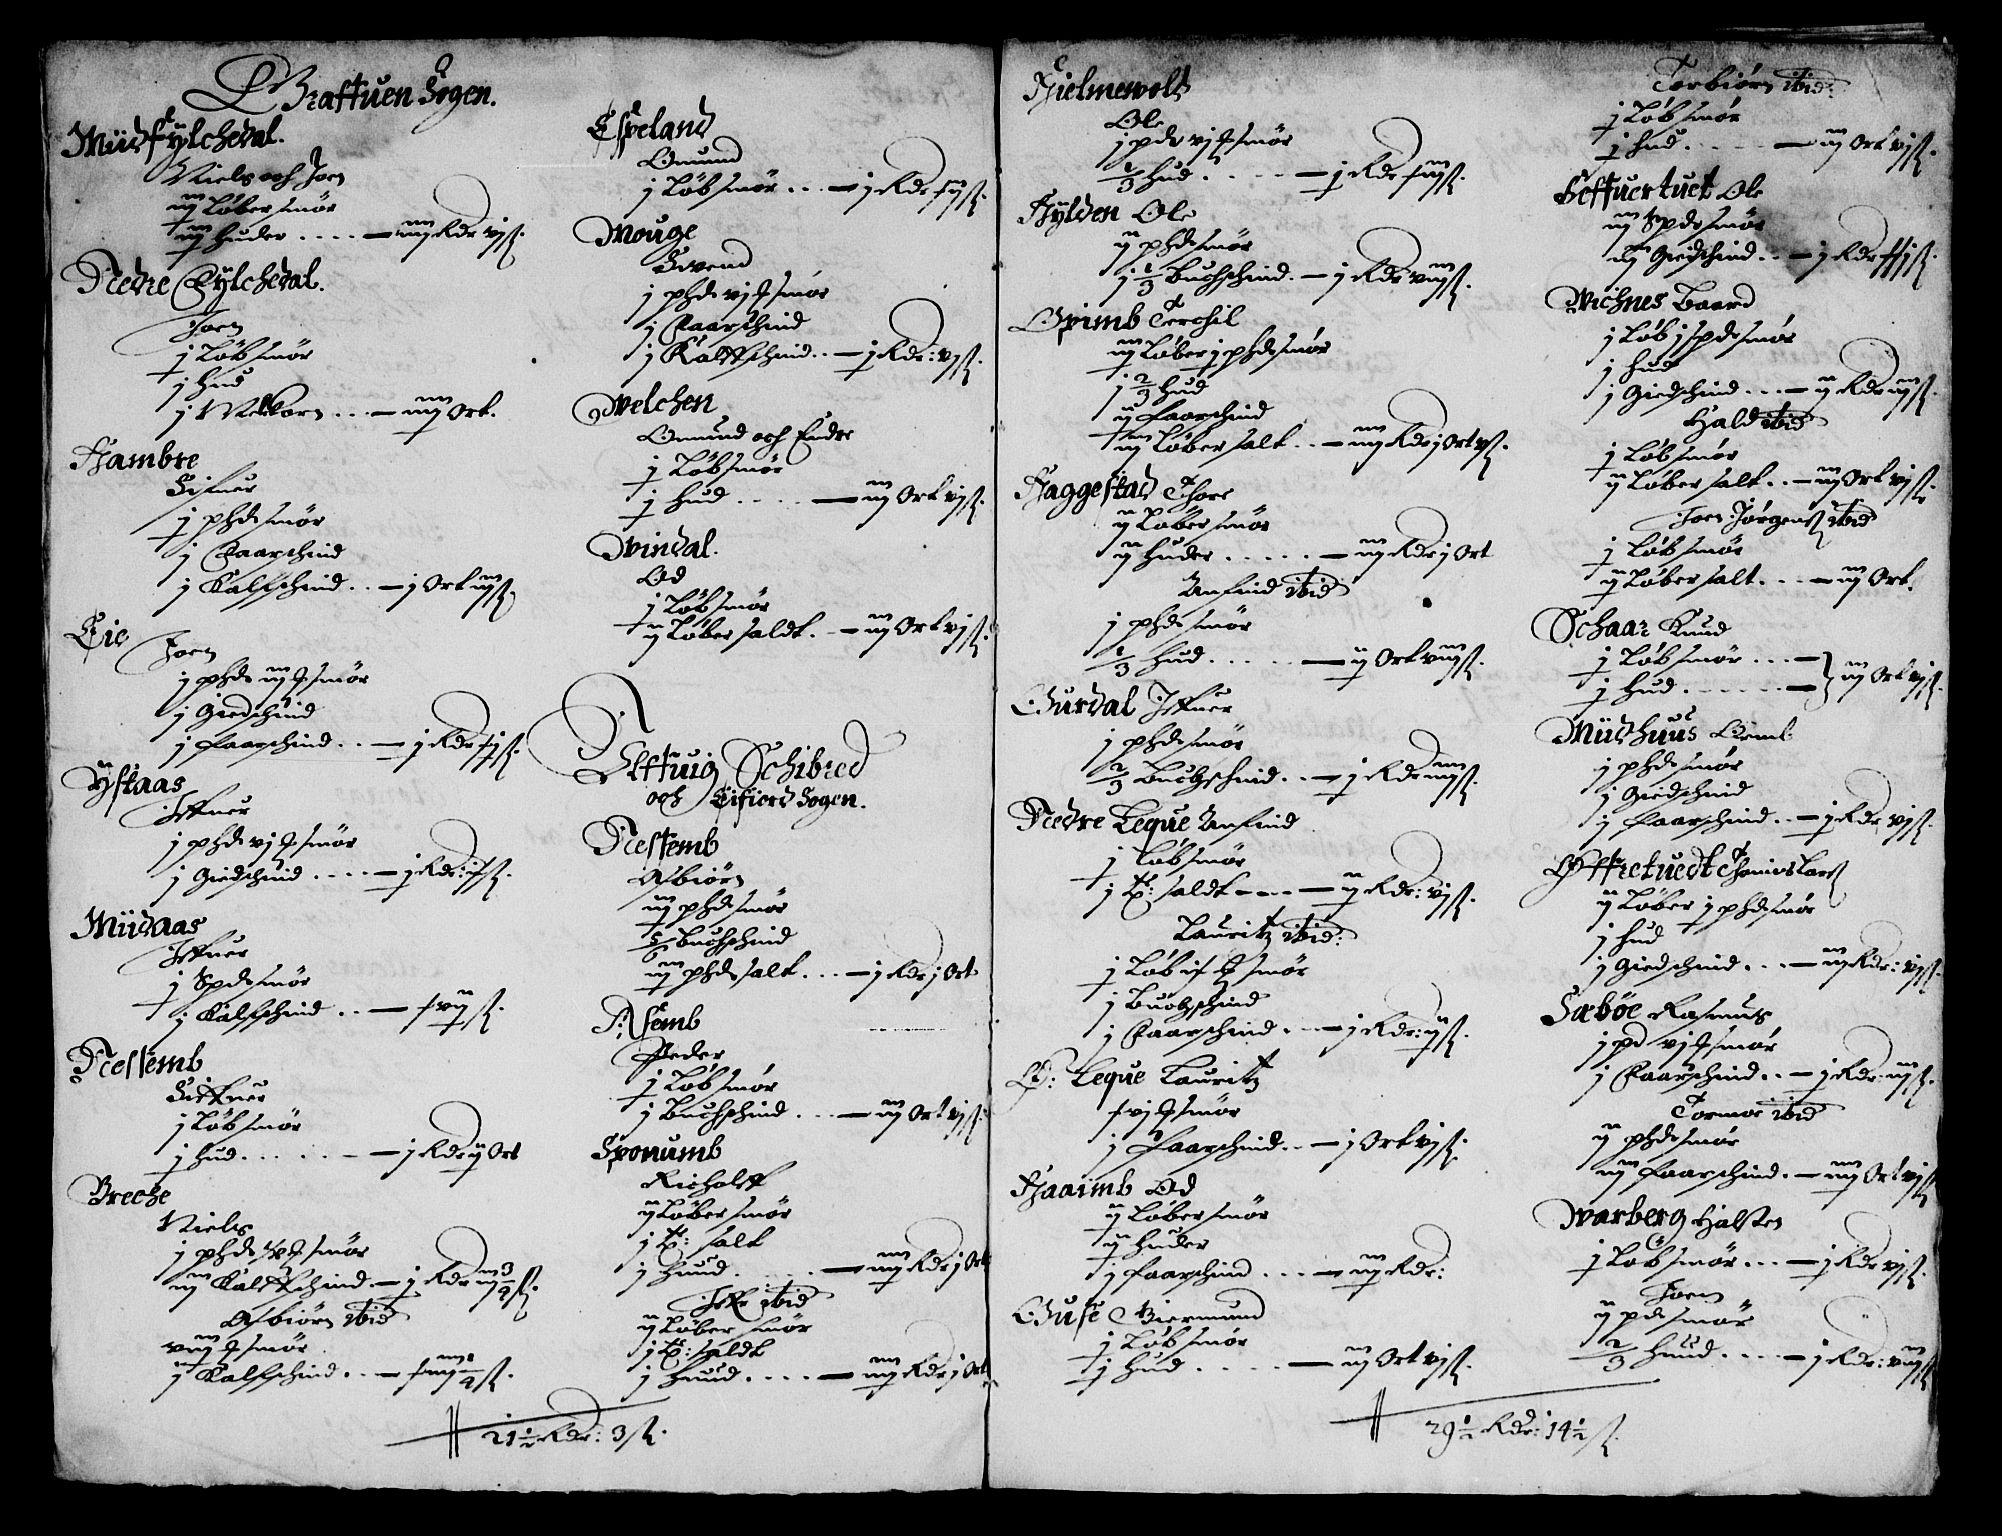 Graffuen Sogen.
Miidfylchedal.
Niels och Joen
iij Løber smør
iij huder .... — iiij Rdr vj ß.
Nedre Fylchedal.
Joen
j Løb smør
j hud
j Mel korn ... — iiij Ort.
Hambre
Sifuer
j phd smør
j Faarschind
j Kalfschind .. — j Ort iiij ß.
Eie
Joen
j phd iiij smør
j Giedschind
j faarschind .. — j Rdr ß.
Ystaas
Iffuer
j phd vj smør
j Giedschind .... — j Rdr: ß.
Miidaas
Iffuer
j Spd smør
j Kalfschind .. — ß.
Nessemb
Siffuer
j Løb smør
j hud ...... — j Rdr ij Ort
Breche
Niels
j phd smør
iij Kalfschind — j Rdr iij 3/4 ß.
Asbiørn ibid
viij smør
j Kalfschind .. — ß.
Espeland
Omund
j Løb smør ... — j Rdr ß.
Mouge
Svend
j phd vj smør
j Faarschind
j Kalfschind .. — j Rdr: vj ß.
Velchen
Omund och Endre
j Løb smør
j hud .... — iij Ort vj ß.
Vindal.
Od
j Løb smør
ij Løber saldt. — iij Ort vj ß.
Schibred
och Eifiord Sogen.
Nestemb
Asbiørn
iij phd smør
5/6 Buchschind
iij phd salt ... — j Rdr j Ort
Peder
j Løb smør
j Buchschind ... — iij Ort vj ß.
Sponumb
Richolff
ij Løber smør
j T: salt
j huud ..... — iiij Rdr j Ort
ibid
ij Løber smør
j T: saldt
j huud .... — iiij Rdr j Ort
21 1/2 Rdr: 3 ß.
Hielmevold
Ole
j pd vj smør
1/3 hud ..... — j Rdr ß.
Hylden Ole
ij phd smør
j 1/3 Buchschind. — j Rdr viiij ß.
Opimb Terchil
iij Løber j phd smør
j 2/3 hud
ij faarschind
iij Løber salt .. — iiij Rdr j Ort vj ß.
Haggestad Thore
ij Løber smør
ij huder ..... — iij Rdr j Ort
Anfind ibid
j phd smør
1/3 hud ..... — ij Ort viiij ß.
Gurdal Iffuer
j phd smør
2/3 Buchschind .. — j Rdr iiij ß.
Nedre Leque Anfind
j Løb smør
j T: saldt — ij Rdr: vj ß.
Lauritz ibid:
j Løb smør
j Buchschind
j Faarschind .. — j Rdr: ij ß.
Ø: Leque Lauritz
smør
j faarschind .. — j Ort vj ß.
Haaimb Od
ij Løber smør
ij huder
j faarschind ... — iiij Rdr:
Guse Giermund
j Løb smør
j hud ..... — iij Ort vj ß.
Torbiørn ibid:
j Løb smør
j hud ..... — iij Ort vj ß.
Seffuertuet Ole
iij Spd smør
iij Giedschind .. — j Rdr ß.
Vichnes Baard
j Løb j spd smør
j hud
j Giedschind ... — ij Rdr iiij ß.
Hald ibid
j Løb smør
ij Løber salt .. — iij Ort vj ß.
Joen Jørgens ibid
j Løb smør
ij Løber salt ... — iij Ort.
Schaar Knud
j Løb smør ... —
j hud ...... — } iij Ort vj ß.
Miidhuus
j phd smør
j Giedschind
j faarschind .. — j Rdr vj ß.
Øffretuedt Thomis Lars
ij Løber j phd smør
j hud
j Giedschind ... — iij Rdr: vj ß.
Sæbøe Rasmus
j pd vj smør
j Faarschind .. — j Rdr: iiij ß.
Tormoe ibid
ij phd smør
iij faarschind .. — iiij Ort vj ß
Varberg Halsten
j Løb smør ... — j Rdr vj ß.
Joen
ij pd smør
2/3 huud .... — j Rdr: viij ß.
29 1/2 Rdr: 14 1/2 ß.